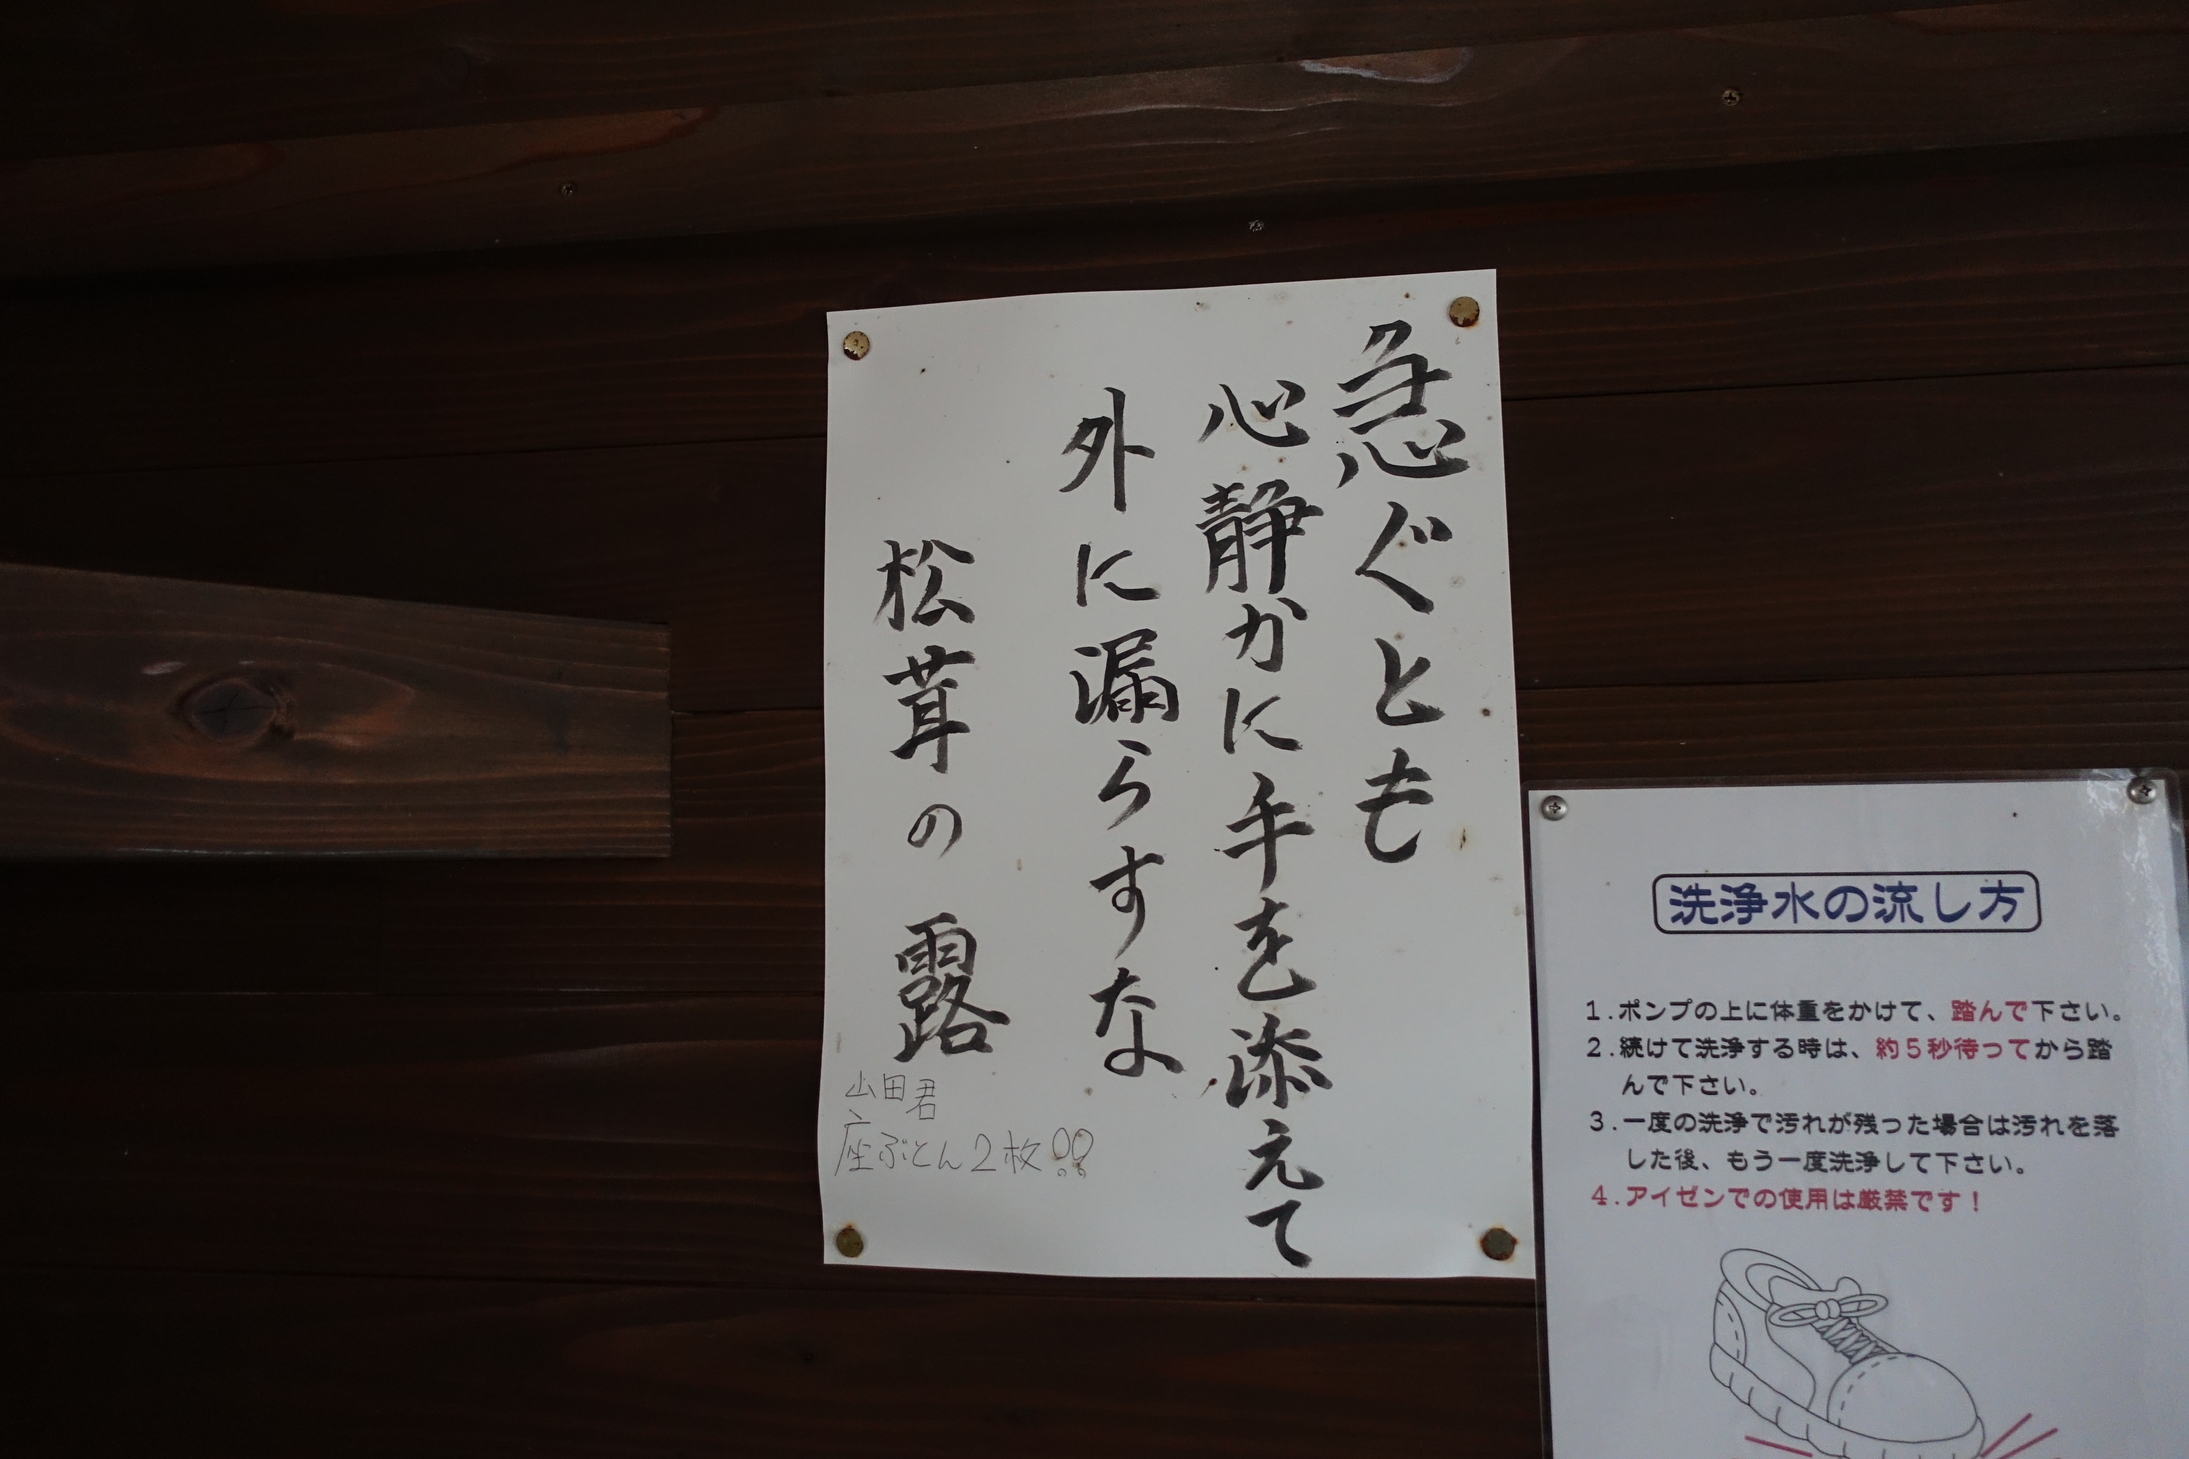 急ぐとも
心静かに手を添えて
外に漏らすな
松茸の露
山田君
座ぶとん2枚!!
洗浄水の流し方
1.ポンプの上に体重をかけて、踏んで下さい。
2.続けて洗浄する時は、約5秒待ってから踏
んで下さい。
3.一度の洗浄で汚れが残った場合は汚れを落
した後、もう一度洗浄して下さい。
4.アイゼンでの使用は厳禁です!